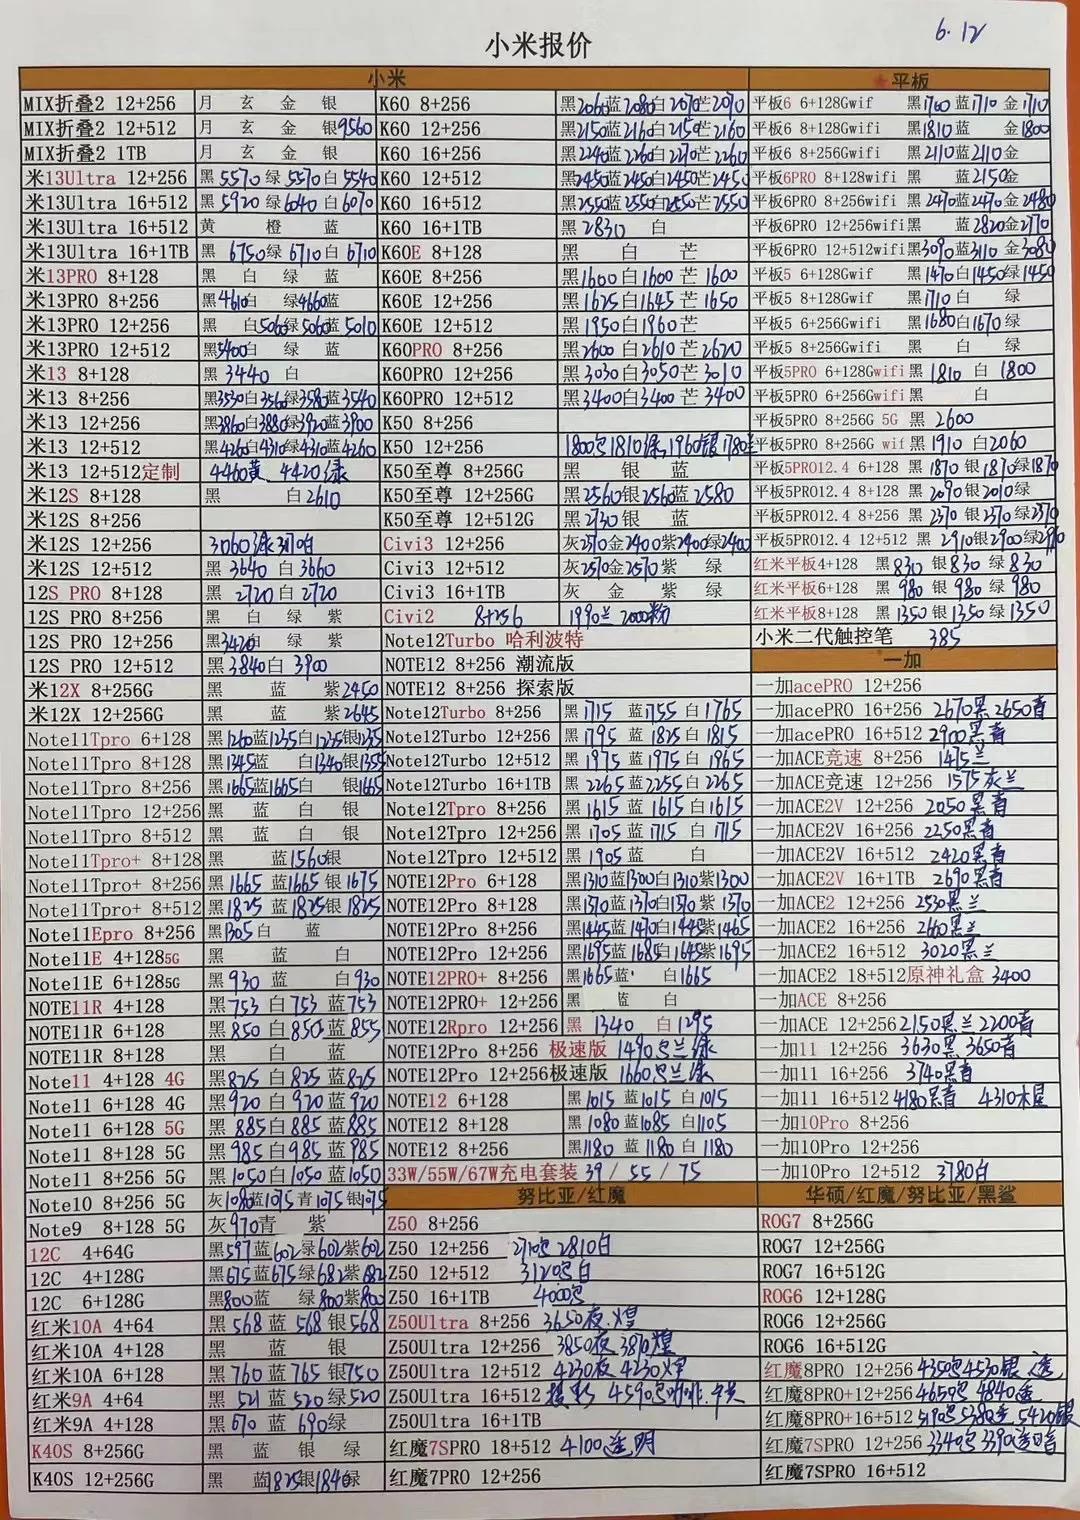 6.12
小米报价
小米
MIX折叠2 12+256 月 玄 金 银
MIX折叠2 12+512 月 玄 金 银9560
MIX折叠2 1TB 月 玄 金 银
米13Ultra 12+256 黑5570 绿5570 白5540
米13Ultra 16+512 黑5920 绿6040 白6070
米13Ultra 16+512 黄 橙 蓝
米13Ultra 16+1TB 黑 6750 绿6710 白6710
米13PRO 8+128 黑 白 绿 蓝
米13PRO 8+256 黑4610白 绿4660蓝
米13PRO 12+256 黑 白5060绿5060蓝5010
米13PRO 12+512 黑5400白 绿 蓝
米13 8+128 黑 3440 白
米13 8+256 黑3530白3560绿3580蓝3540
米13 12+256 黑3860白3880绿3920蓝3900
米13 12+512 黑4260白4310绿4310蓝4260
米13 12+512定制 4460黄 4420绿
米12S 8+128 黑 白2610
米12S 8+256
米12S 12+256 3060绿
米12S 12+512 黑 3640 白 3660
12S PRO 8+128 黑 2720 白 2720
12S PRO 8+256 黑 白 绿 紫
12S PRO 12+256 黑3420白 绿 紫
12S PRO 12+512 黑 3840白 3900
米12X 8+256G 黑 蓝 紫2450
米12X 12+256G 黑 蓝 紫2645
Note11Tpro 6+128 黑1260蓝1235白1235银1235
Note11Tpro 8+128 黑1345蓝 白1340银1355
Note11Tpro 8+256 黑1665蓝1665白 银1665
Note11Tpro 12+256 黑 蓝 白 银
Note11Tpro 8+512 黑 蓝 白 银
Note11Tpro+ 8+128 黑 蓝1560银
Note11Tpro+ 8+256 黑1665 蓝1665 银1675
Note11Tpro+ 8+512 黑1825 蓝1825银1825
Note11Epro 8+256 黑1305白 蓝
Note11E 4+1285G 黑 蓝 白
Note11E 6+1285G 黑930 蓝 白930
NOTE11R 4+128 黑753 白753 蓝753
NOTE11R 6+128 黑850 白850 蓝855
NOTE11R 8+128 黑 白 蓝
Note11 4+128 4G 黑825 白825 蓝825
Note11 6+128 4G 黑920 白920 蓝920
Note11 6+128 5G 黑885白885 蓝885
Note11 8+128 5G 黑985白985 蓝985
Note11 8+256 5G 黑1050白1050 蓝1050
Note10 8+256 5G 灰1080蓝1075 青1075 银1075
Note9 8+128 5G 灰970青 紫
12C 4+64G 黑597蓝602绿602紫602
12C 4+128G 黑675蓝675绿682紫682
12C 6+128G 黑800蓝 绿800紫800
红米10A 4+64 黑568 蓝568 银568
红米10A 4+128 黑 蓝 银
红米10A 6+128 黑760 蓝765 银750
红米9A 4+64 黑 521 蓝520 绿520
红米9A 4+128 黑670 蓝690绿
K40S 8+256G 黑 蓝 银 绿
K40S 12+256G 黑 蓝1825银1840绿
K60 8+256 黑2060蓝2080白2070芒2070
K60 12+256 黑2150蓝2160白2150芒2160
K60 16+256 黑2240蓝2260白2270芒2260
K60 12+512 黑2450蓝2450白2450芒2450
K60 16+512 黑2550蓝2550白2550芒2550
K60 16+1TB 黑2830 白
K60E 8+128 黑 白 芒
K60E 8+256 黑1600白1600 芒1600
K60E 12+256 黑1625白1645 芒1650
K60E 12+512 黑1950白1960芒
K60PRO 8+256 黑2600 白2610 芒2620
K60PRO 12+256 黑3030白3050芒3010
K60PRO 12+512 黑3400白3400 芒3400
K50 8+256
K50 12+256 1800 1810绿 1960银 1780兰
K50至尊 8+256G 黑 银 蓝
K50至尊 12+256G 黑2560银2560蓝2580
K50至尊 12+512G 黑2730银 蓝
Civi3 12+256 灰2370金2400紫2400绿2400
Civi3 12+512 灰2570金2570紫 绿
Civi3 16+1TB 灰 金 紫 绿
Civi2 8+256 1990兰 2000粉
Note12Turbo 哈利波特
NOTE12 8+256 潮流版
NOTE12 8+256 探索版
Note12Turbo 8+256 黑1715 蓝1755 白1765
Note12Turbo 12+256 黑1795 蓝1825 白1815
Note12Turbo 12+512 黑1975 蓝1975 白1965
Note12Turbo 16+1TB 黑2265蓝2255白2265
Note12Tpro 8+256 黑1615 蓝1615 白1615
Note12Tpro 12+256 黑1705 蓝1715 白1715
Note12Tpro 12+512 黑1905蓝 白
NOTE12Pro 6+128 黑1310蓝1300白1310紫1300
NOTE12Pro 8+128 黑1370蓝1370白1370紫1370
NOTE12Pro 8+256 黑1445蓝1470白1445紫1465
NOTE12Pro 12+256 黑1695蓝1685白1645紫1695
NOTE12PRO+ 8+256 黑1665蓝 白1665
NOTE12PRO+ 12+256 黑 蓝 白
NOTE12Rpro 12+256 黑 1340 白1295
NOTE12Pro 8+256 极速版 1490 兰绿
NOTE12Pro 12+256极速版 1660 兰绿
NOTE12 6+128 黑1015 蓝1015 白1015
NOTE12 8+128 黑1080蓝1085 白1105
NOTE12 8+256 黑1180 蓝1180 白1180
33W/55W/67W充电套装 39 / 55 / 75
努比亚/红魔
Z50 8+256
Z50 12+256 2810白
Z50 12+512 3120 白
Z50 16+1TB 4000
Z50Ultra 8+256 3650夜 煌
Z50Ultra 12+256 3850夜 3870煌
Z50Ultra 12+512 4230夜 4230煌
Z50Ultra 16+512 4590 咖啡
Z50Ultra 16+1TB
红魔7SPRO 18+512 4100透明
红魔7PRO 12+256
★平板
平板6 6+128Gwif 黑1700 蓝1710 金1710
平板6 8+128Gwifi 黑1810蓝 金1800
平板6 8+256Gwifi 黑2110蓝2110金
平板6PRO 8+128wifi 黑 蓝2150金
平板6PRO 8+256wifi 黑2470蓝2470金2480
平板6PRO 12+256wifi 黑 蓝2820金2770
平板6PRO 12+512wifi黑3090蓝3110 金3080
平板5 6+128Gwif 黑1470白1450绿1450
平板5 8+128Gwif 黑1710白 绿
平板5 6+256Gwifi 黑1680白1670绿
平板5 8+256Gwifi 黑 白 绿
平板5PRO 6+128Gwifi 黑 1810 白 1800
平板5PRO 6+256Gwifi 黑 白
平板5PRO 8+256G 5G 黑 2600
平板5PRO 8+256G wif 黑1910 白2060
平板5PRO12.4 6+128 黑1870 银1870绿1870
平板5PRO12.4 8+128 黑2090银2010绿
平板5PRO12.4 8+256 黑2370 银2370绿2370
平板5PRO12.4 12+512 黑 2910银2900绿2910
红米平板4+128 黑830 银830 绿830
红米平板6+128 黑980 银980 绿980
红米平板8+128 黑1350银1350绿1350
小米二代触控笔 385
一加
一加acePRO 12+256
一加acePRO 16+256 2670黑2650青
一加acePRO 16+512 2900黑青
一加ACE竞速 8+256 1475兰
一加ACE竞速 12+256 1575灰兰
一加ACE2V 12+256 2050黑青
一加ACE2V 16+256 2250黑青
一加ACE2V 16+512 2420黑青
一加ACE2V 16+1TB 2690黑青
一加ACE2 12+256 2530黑兰
一加ACE2 16+256 2660黑兰
一加ACE2 16+512 3020黑兰
一加ACE2 18+512原神礼盒 3400
一加ACE 8+256
一加ACE 12+256 2150黑兰2200青
一加11 12+256 3630黑 3650青
一加11 16+256 3740黑青
一加11 16+512 4180黑青 4310木星
一加10Pro 8+256
一加10Pro 12+256
一加10Pro 12+512 3780白
华硕/红魔/努比亚/黑鲨
ROG7 8+256G
ROG7 12+256G
ROG7 16+512G
ROG6 12+128G
ROG6 12+256G
ROG6 16+512G
红魔8PRO 12+256 4350 4530银、透
红魔8PRO+12+256 4655 4840透
红魔8PRO+16+512 5190 5380透 5420银
红魔7SPRO 12+256 3340 3390透暗
红魔7SPRO 16+512